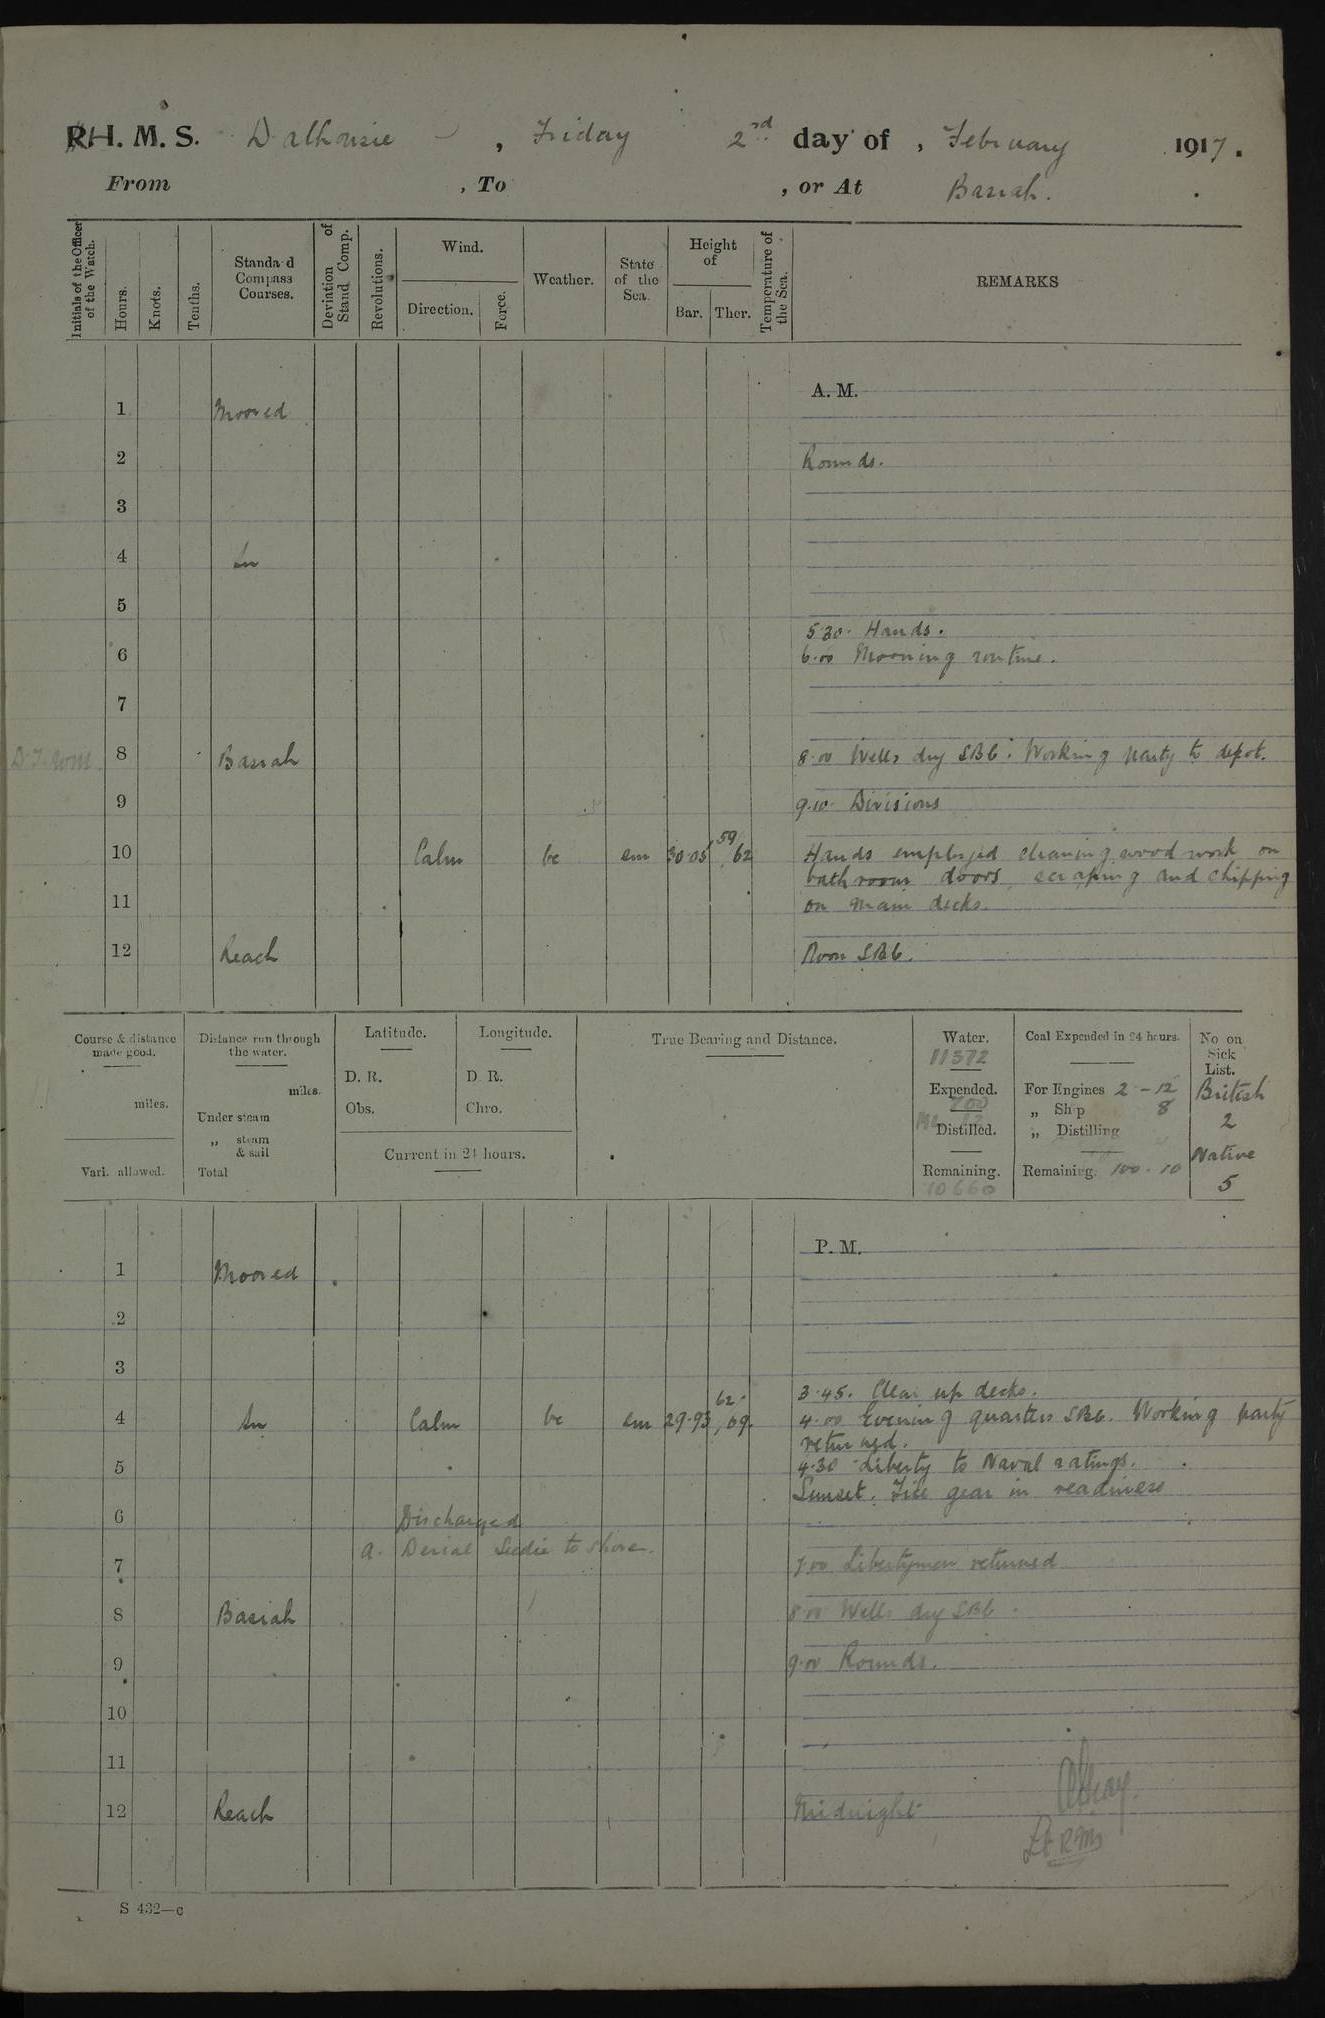 R H. M. S. Dalhousie , Friday 2nd day of , February 1917.
From , To , or At Basrah.
Initials of the Officer of the Watch.
Hours.
Knots.
Tenths.
Standard Compass Courses.
Deviation of Stand Comp.
Revolutions.
Wind.
Direction.
Force.
Weather.
State of the Sea.
Height of
Bar. Ther.
Temperature of the Sea.
REMARKS
A. M.
1 Moored
2 Rounds.
3
4 In
5
5.30. Hands.
6 6.00 Morning routine.
7
8 Basrah 8.00 Wells dry SBC. Working party to depot.
9 9.00. Divisions
10 Calm bc sm 30.05 59/62 Hands employed cleaning wood work on
bath room doors, scraping and chipping
11 on main decks.
12 Reach Noon SBC.
Course & distance made good.
miles.
Vari. allowed.
Distance run through the water.
miles.
Under steam
„ steam & sail
Total
Latitude.
D. R.
Obs.
Longitude.
D. R.
Chro.
Current in 24 hours.
True Bearing and Distance.
Water.
11372
Expended.
Distilled.
Remaining.
10660
Coal Expended in 24 hours.
For Engines 2 - 12
„ Ship 8
„ Distilling
Remaining. 100 - 10
No on Sick List.
British
2
Native
5
P. M.
1 Moored
2
3
3.45. Clear up decks.
4 In Calm bc sm 29.93 62/69. 4.00 Evening quarters SBC. Working party
returned.
5 4.30 Liberty to Naval ratings.
Sunset. Fire gear in readiness
6 Discharged
a. Seedie to shore.
7 7.00 Libertymen returned
8 Basrah 8.00 Wells dry SBC.
9 9.00 Rounds.
10
11
12 Reach Midnight
Lt RIM
S 432—c